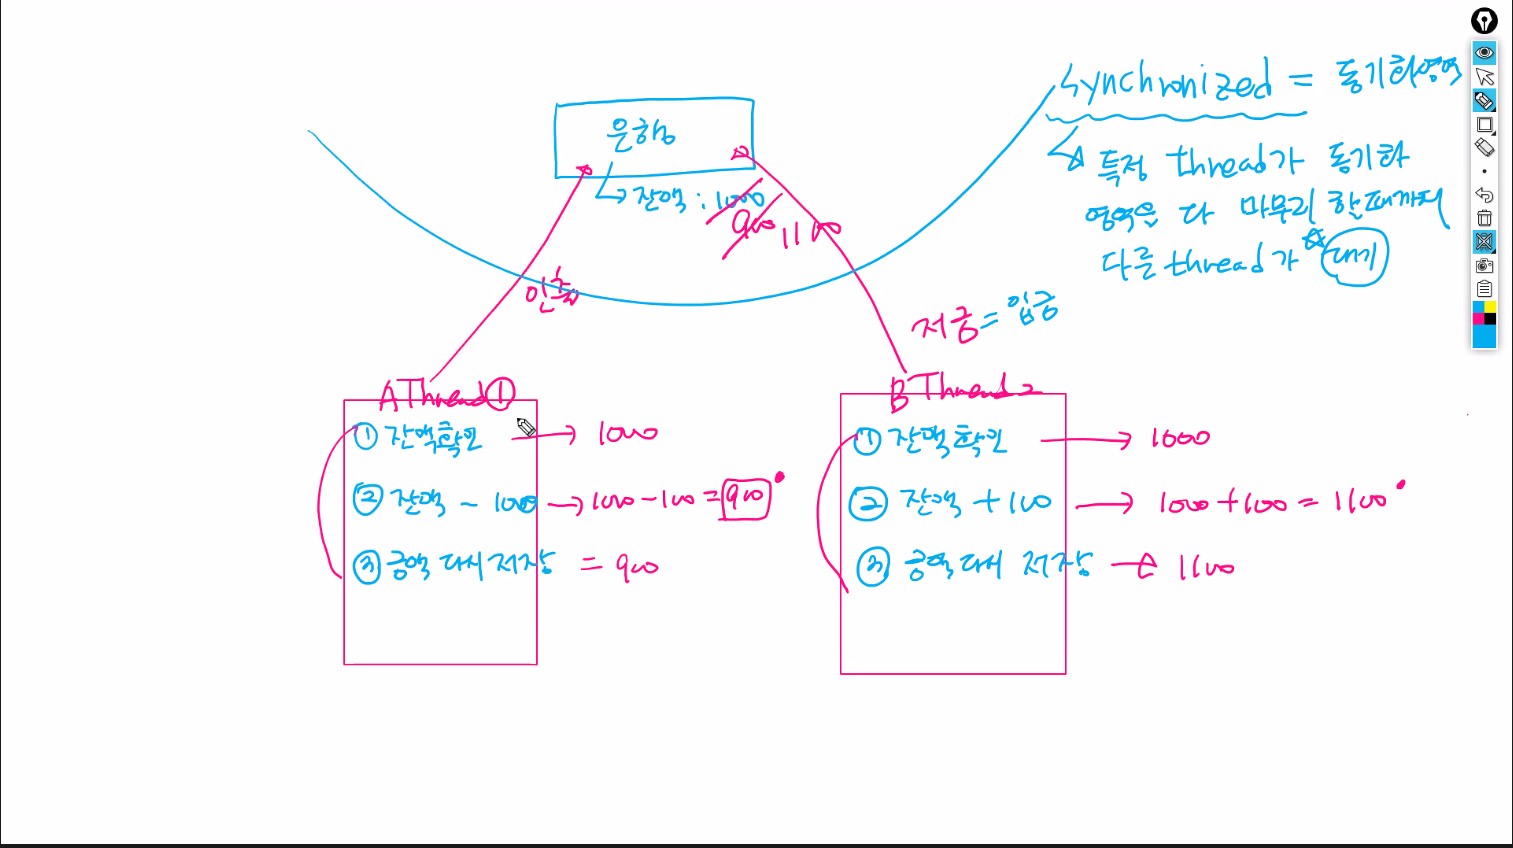 Synchronized = 동기화영역
은행
↳ 잔액 : 1000
900 1100
특정 thread가 동기화
영역을 다 마무리 할때까지
다른 thread가 대기
인출
저금 = 입금
A Thread ①
① 잔액확인 → 1000
② 잔액 - 100 → 1000 - 100 = 900
③ 금액 다시 저장 = 900
B Thread 2
① 잔액확인 → 1000
② 잔액 + 100 → 1000 + 100 = 1100
③ 금액 다시 저장 → 1100